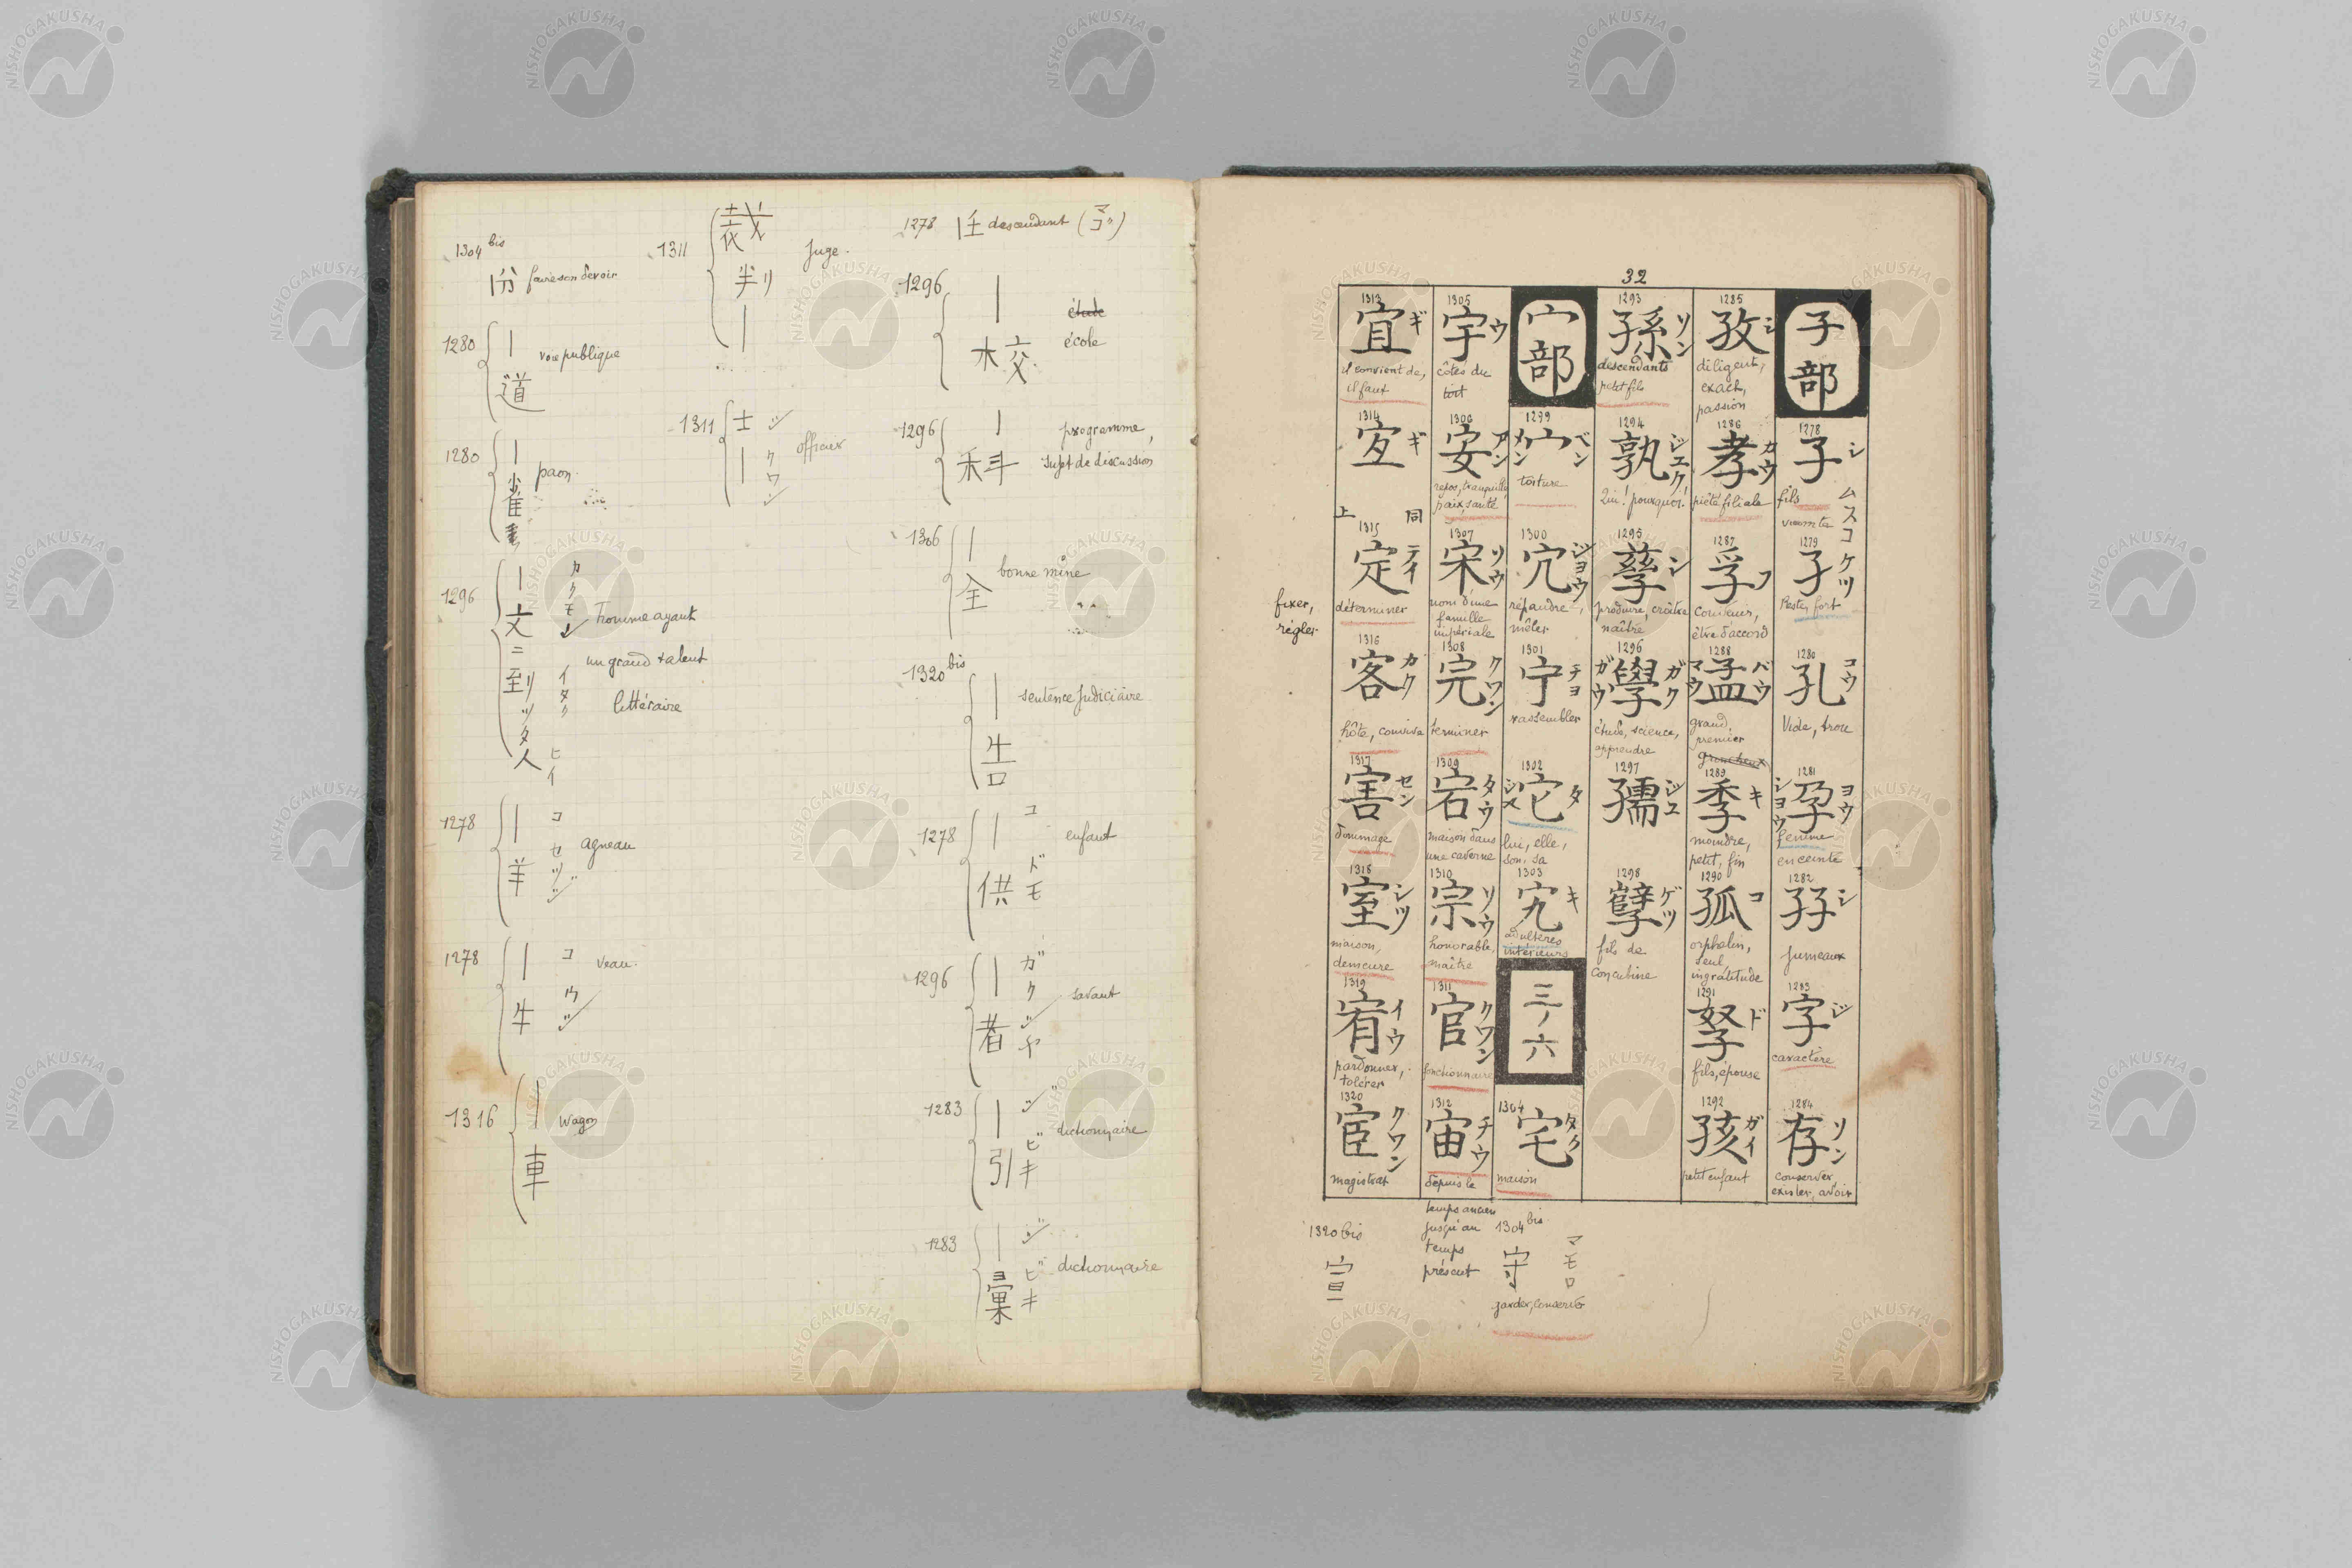 1304 bis
| 分 faire son devoir
1280
|
道
voie publique
1280
|
雀
paon
1296
|
文
ニ
到リ
ッ
タ
人
カクモン
イタッ
ヒイ
homme ayant
un grand talent
littéraire
1278
|
羊
コ
セツジ
agneau
1278
|
牛
コ
ウシ
veau.
1316
|
車
wagon
1311
裁
判
|
juge.
1311
士 シ
| クワン
officier
1278 | 壬 descendant (マゴ)
1296
|
木交
étude
école
1296
|
科
programme,
sujet de discussion
1306
|
全
bonne mine
1320 bis
|
告
sentence judiciaire
1278
|
供
コ
ドモ
enfant
1296
|
者
ガク
ジヤ
savant
1283
|
引
ジ
ビキ
dictionnaire
1283
|
彙
ジ
ビキ
dictionnaire
32
子部
1278
子 シ
ムスコ
fils
vicomte
1279
孑 ケツ
Reste, fort
1280
孔 コウ
Vide, trou
1281
孕 ヨウ
ショウ
femme
enceinte
1282
孖 シ
Jumeaux
1283
字 ジ
caractère
1284
存 ソン
conserver,
exister, avoir
1285
孜 シ
diligent,
exact,
passion
1286
孝 カウ
piété filiale
1287
孚 フ
couveur,
être d'accord
1288
孟 バウ
マウ
grand,
premier
1289
季 キ
moindre,
petit, fin
1290
孤 コ
orphelin,
seul,
ingratitude
1291
孥 ド
fils, épouse
1292
孩 ガイ
petit enfant
1293
孫 ソン
descendants
petit fils
1294
孰 ジュク
Qui! pourquoi!
1295
孳 シ
produire, croître
naître
1296
學 ガク
ガウ
étude, science,
apprendre
1297
孺 ジュ
1298
孼 ゲツ
fils de
concubine
宀部
1299
宀 ベン
メン
toiture
1300
宂 ジョウ
répandre,
mêler
1301
宁 チョ
rassembler
1302
它 タ
lui, elle,
son, sa
1303
宄 キ
adultères
intérieurs
三ノ六
1304
宅 タク
maison
1304 bis
守
マモロ
garder, conserver
1305
宇 ウ
côtés du
toit
1306
安 アン
repos, tranquille,
paix, santé
1307
宋 ソウ
nom d'une
famille
impériale
1308
完 クワン
terminer
1309
宕 タウ
maison dans
une caverne
1310
宗 ソウ
honorable,
maître
1311
官 クワン
fonctionnaire
1312
宙 チウ
depuis le
temps ancien
jusqu'au
temps
présent
1313
宜 ギ
il convient de,
il faux
1314
宐 ギ
同上
1315
定 テイ
déterminer
fixer,
régler
1316
客 カク
hôte, convive
1317
害 セン
dommage
1318
室 シツ
maison,
demeure
1319
宥 イウ
pardonner,
tolérer
1320
宦 クワン
magistrat
1320 bis
宣
NISHOGAKUSHA